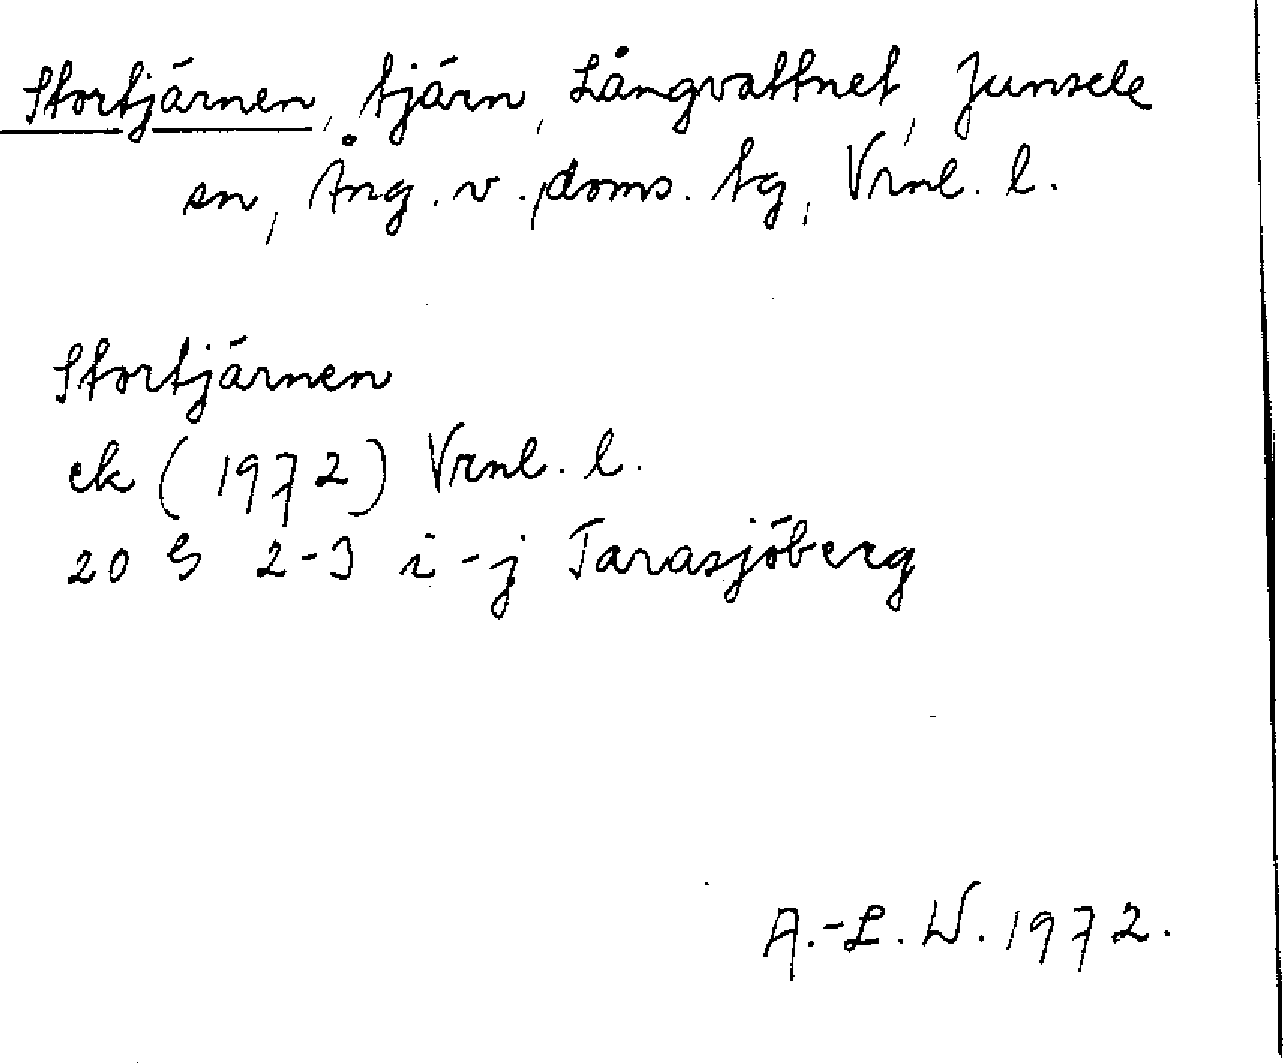 Stortjärnen, tjärn, Långvattnet, Junsele
sn, Ång. v. doms. tg, Vrnl. l.
Stortjärnen
ek (1972) Vrnl. l.
20 G 2-3 i-j Tarasjöberg
A.-L. W. 1972.